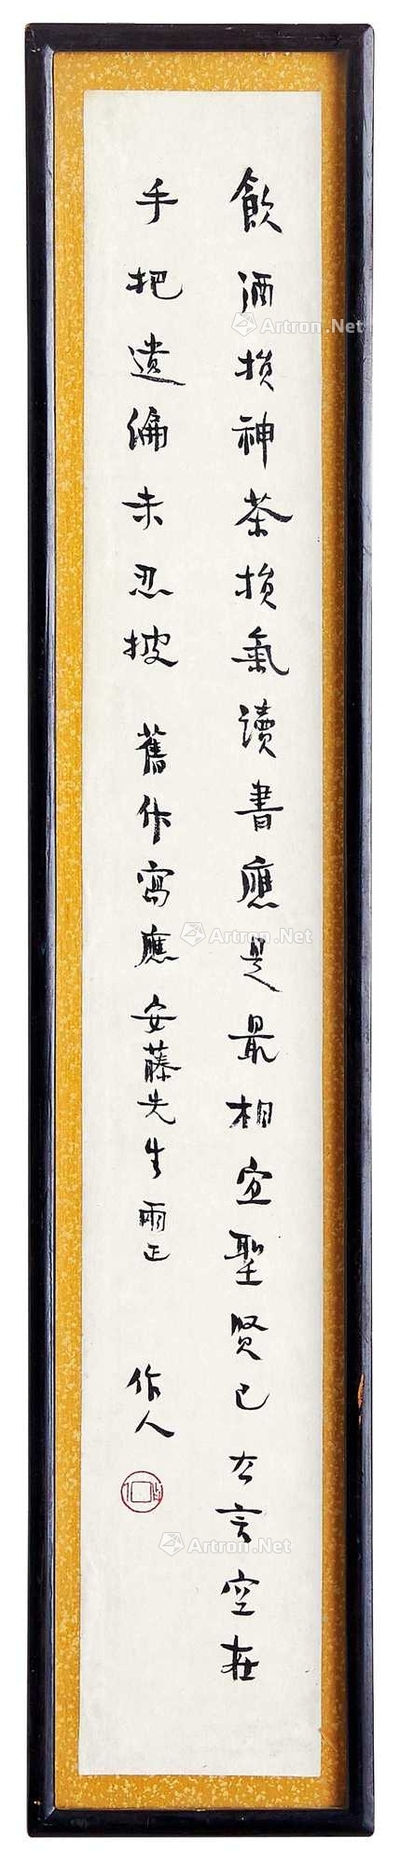 飲酒損神茶損氣讀書應是最相宜聖賢已死言空在
手把遺編未忍披 舊作寫應安藤先生雨正 作人
Artron.Net
Artron.Net
Artron.Net